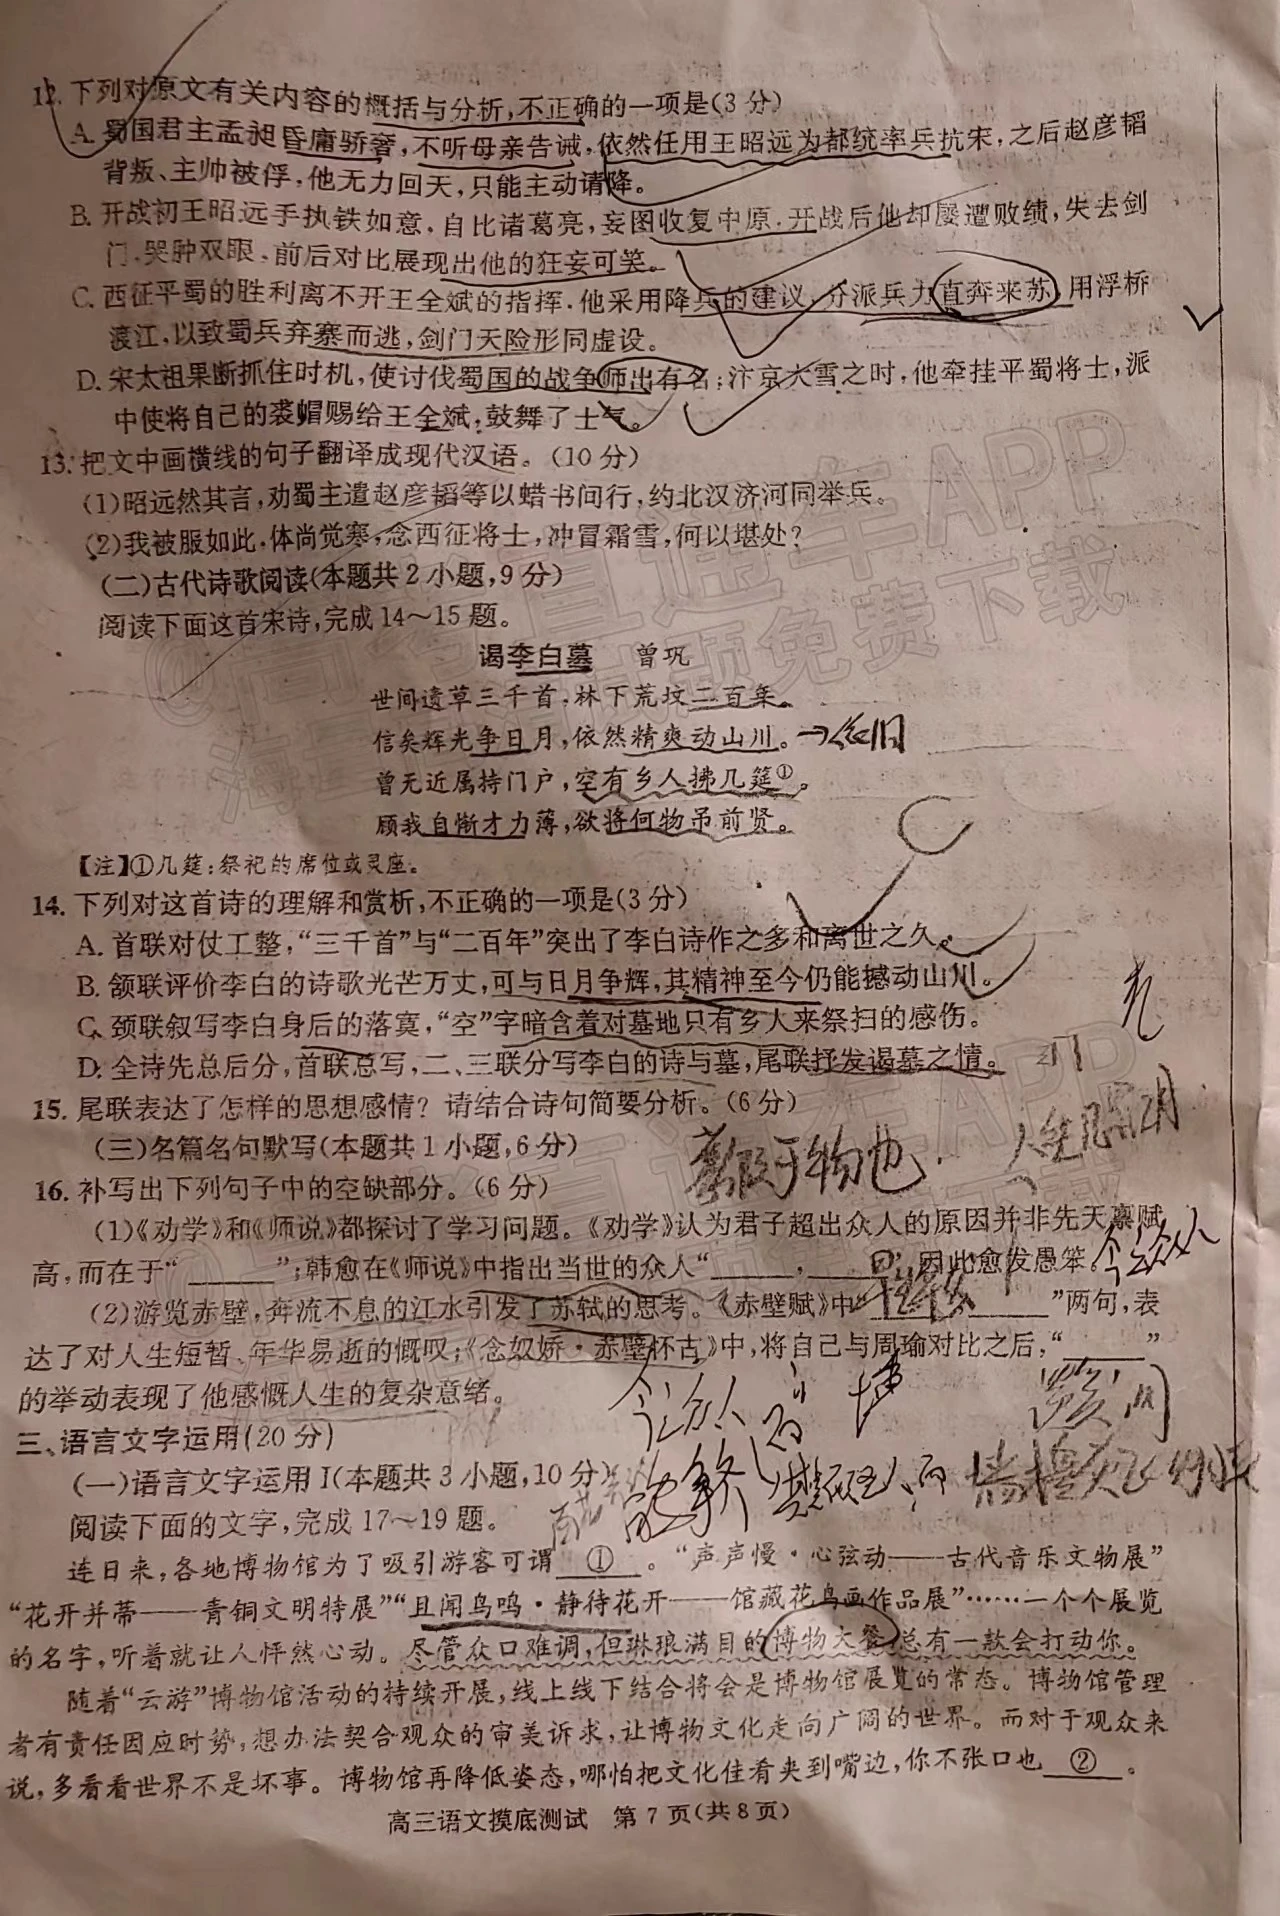 12.下列对原文有关内容的概括与分析,不正确的一项是(3分)
A.蜀国君主孟昶昏庸骄奢,不听母亲告诫,依然任用王昭远为都统率兵抗宋,之后赵彦韬
背叛、主帅被俘,他无力回天,只能主动请降。
B.开战初王昭远手执铁如意,自比诸葛亮,妄图收复中原,开战后他却屡遭败绩,失去剑
门,哭肿双眼,前后对比展现出他的狂妄可笑。
C.西征平蜀的胜利离不开王全斌的指挥,他采用降兵的建议,分派兵力直奔来苏,用浮桥
渡江,以致蜀兵弃寨而逃,剑门天险形同虚设。
D.宋太祖果断抓住时机,使讨伐蜀国的战争师出有名;汴京大雪之时,他牵挂平蜀将士,派
中使将自己的裘帽赐给王全斌,鼓舞了士气。
13.把文中画横线的句子翻译成现代汉语。(10分)
(1)昭远然其言,劝蜀主遣赵彦韬等以蜡书间行,约北汉济河同举兵。
(2)我被服如此,体尚觉寒,念西征将士,冲冒霜雪,何以堪处?
(二)古代诗歌阅读(本题共2小题,9分)
阅读下面这首宋诗,完成14~15题。
谒李白墓 曾巩
世间遗草三千首,林下荒坟二百年。
信矣辉光争日月,依然精爽动山川。
曾无近属持门户,空有乡人拂几筵①。
顾我自惭才力薄,欲将何物吊前贤。
【注】①几筵:祭祀的席位或灵座。
14.下列对这首诗的理解和赏析,不正确的一项是(3分)
A.首联对仗工整,“三千首”与“二百年”突出了李白诗作之多和离世之久。
B.颔联评价李白的诗歌光芒万丈,可与日月争辉,其精神至今仍能撼动山川。
C.颈联叙写李白身后的落寞,“空”字暗含着对墓地只有乡人来祭扫的感伤。
D.全诗先总后分,首联总写,二、三联分写李白的诗与墓,尾联抒发谒墓之情。
15.尾联表达了怎样的思想感情?请结合诗句简要分析。(6分)
(三)名篇名句默写(本题共1小题,6分)
善假于物也
16.补写出下列句子中的空缺部分。(6分)
(1)《劝学》和《师说》都探讨了学习问题。《劝学》认为君子超出众人的原因并非先天禀赋
高,而在于“______”;韩愈在《师说》中指出当世的众人“______,______”,因此愈发愚笨。
今之众人
(2)游览赤壁,奔流不息的江水引发了苏轼的思考。《赤壁赋》中“______,______”两句,表
达了对人生短暂、年华易逝的慨叹;《念奴娇·赤壁怀古》中,将自己与周瑜对比之后,“______”
的举动表现了他感慨人生的复杂意绪。
今之众人
三、语言文字运用(20分)
(一)语言文字运用Ⅰ(本题共3小题,10分)
阅读下面的文字,完成17~19题。
连日来,各地博物馆为了吸引游客可谓 ① 。“声声慢·心弦动——古代音乐文物展”
“花开并蒂——青铜文明特展”“且闻鸟鸣·静待花开——馆藏花鸟画作品展”……一个个展览
的名字,听着就让人怦然心动。尽管众口难调,但琳琅满目的博物大餐,总有一款会打动你。
随着“云游”博物馆活动的持续开展,线上线下结合将会是博物馆展览的常态。博物馆管理
者有责任因应时势,想办法契合观众的审美诉求,让博物文化走向广阔的世界。而对于观众来
说,多看看世界不是坏事。博物馆再降低姿态,哪怕把文化佳肴夹到嘴边,你不张口也 ② 。
高三语文摸底测试 第7页(共8页)